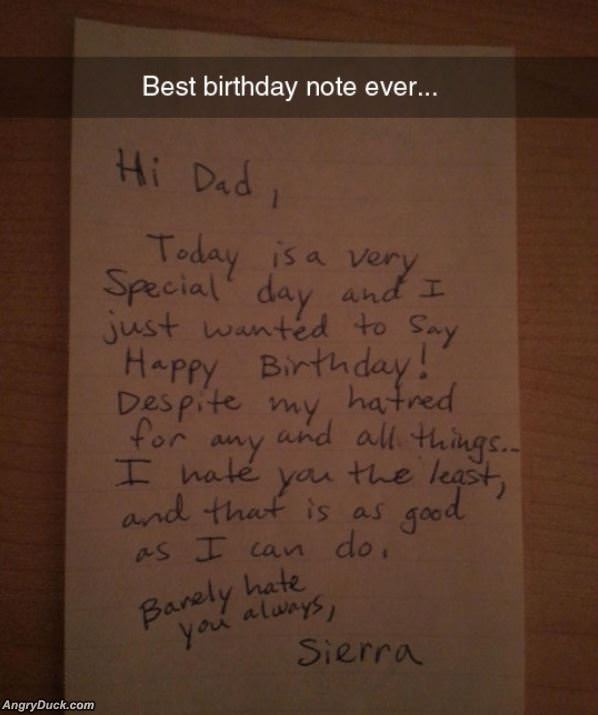 Best birthday note ever...
Hi Dad,
Today is a very
Special day and I
just wanted to Say
Happy Birthday!
Despite my hatred
for any and all things...
I hate you the least,
and that is as good
as I can do.
Barely hate
you always,
Sierra
AngryDuck.com